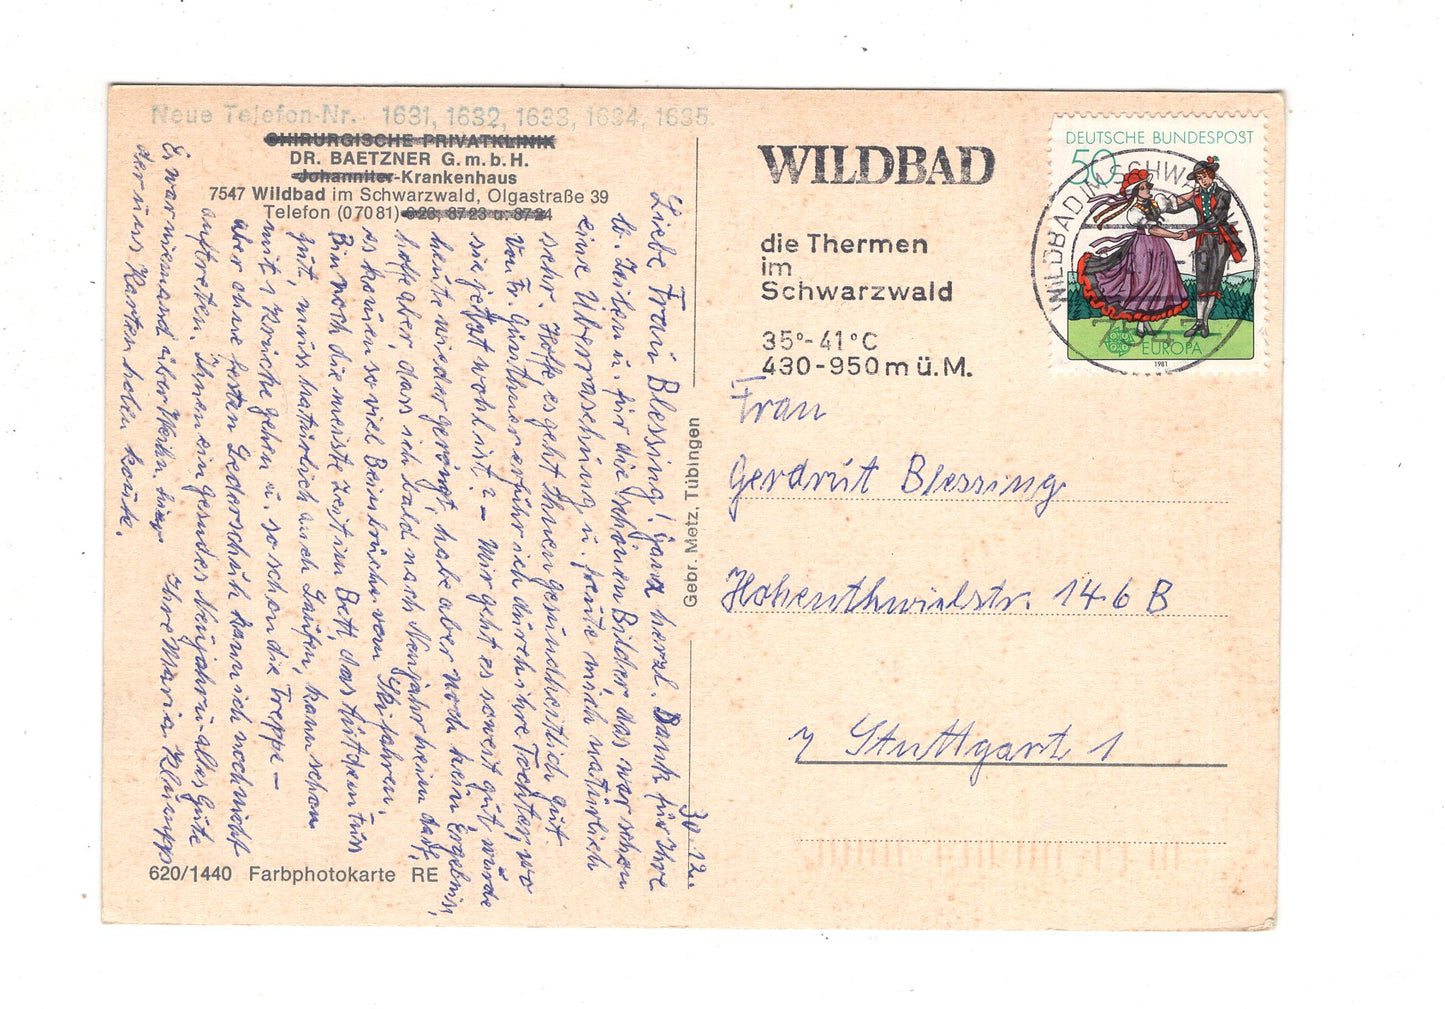 Neue Telefon-Nr. 1631, 1632, 1633, 1634, 1635.
CHIRURGISCHE PRIVATKLINIK
DR. BAETZNER G.m.b.H.
Johanniter-Krankenhaus
7547 Wildbad im Schwarzwald, Olgastraße 39
Telefon (07081) 8723 u. 8724
30.12.
Liebe Frau Blessing! Ganz herzl. Dank für Ihre
lb. Zeilen u. für die schönen Bilder, das war schon
eine Überraschung u. freute mich natürlich
sehr. Hoffe es geht Ihnen gesundheitlich gut
Von Fr. Günthner erfuhr ich durch ihre Tochter, wo
sie jetzt wohl ist? – Mir geht es soweit gut wurde
heute wieder geröngt, habe aber noch kein Ergebniss,
hoffe aber, dass ich bald nach Neujahr heim darf,
es kamen so viel Beinbrüche vom Skifahren.
Bin noch die meiste Zeit im Bett, das tut dem Fuss
gut, muss natürlich auch Laufen, kann schon
mit 1 Krücke gehen u. so schon die Treppe –
aber ohne festen Lederschuh kann ich noch nicht
auftreten. Ihnen ein gesundes Neujahr u. alles Gute
Ihre Maria Klumpp
Es war niemand über Weihn. hier
der uns Karten holen konnte.
620/1440 Farbphotokarte RE
Gebr. Metz, Tübingen
WILDBAD
die Thermen
im
Schwarzwald
35°-41°C
430-950m ü.M.
DEUTSCHE BUNDESPOST
50
EUROPA
1981
WILDBAD IM SCHWARZWALD
7547
Frau
Gerdrut Blessing
Hohentwielstr. 146 B
7 Stuttgart 1